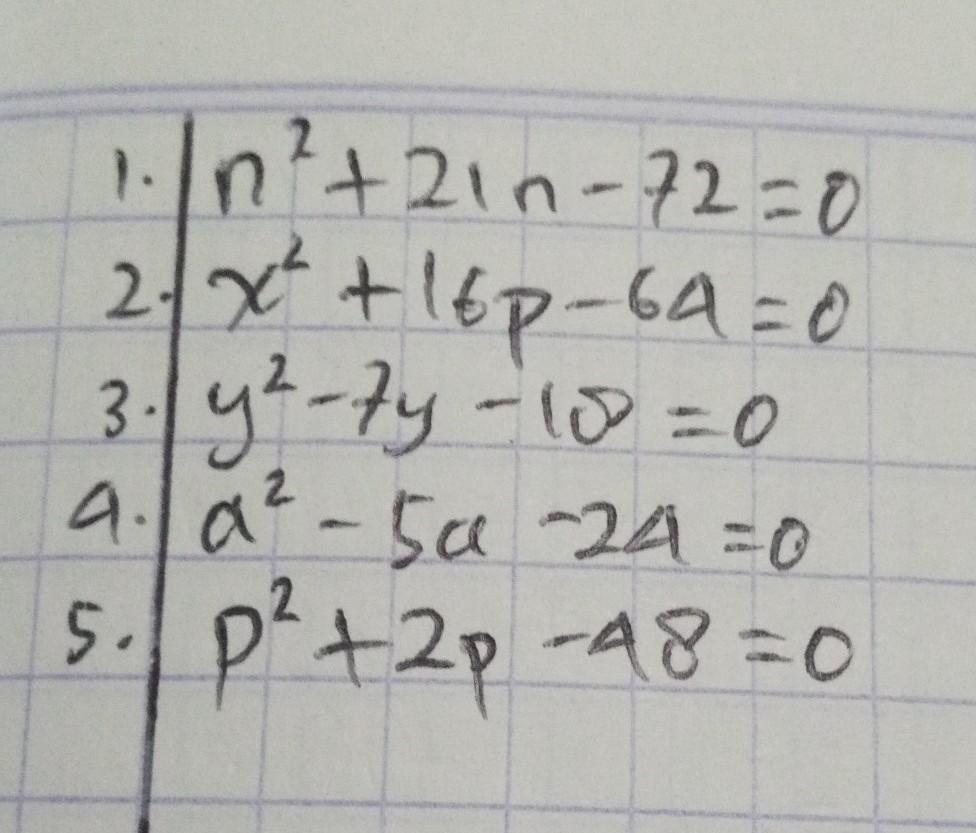 1. n² + 21n - 72 = 0
2. x² + 16p - 64 = 0
3. y² - 7y - 18 = 0
4. a² - 5a - 24 = 0
5. p² + 2p - 48 = 0